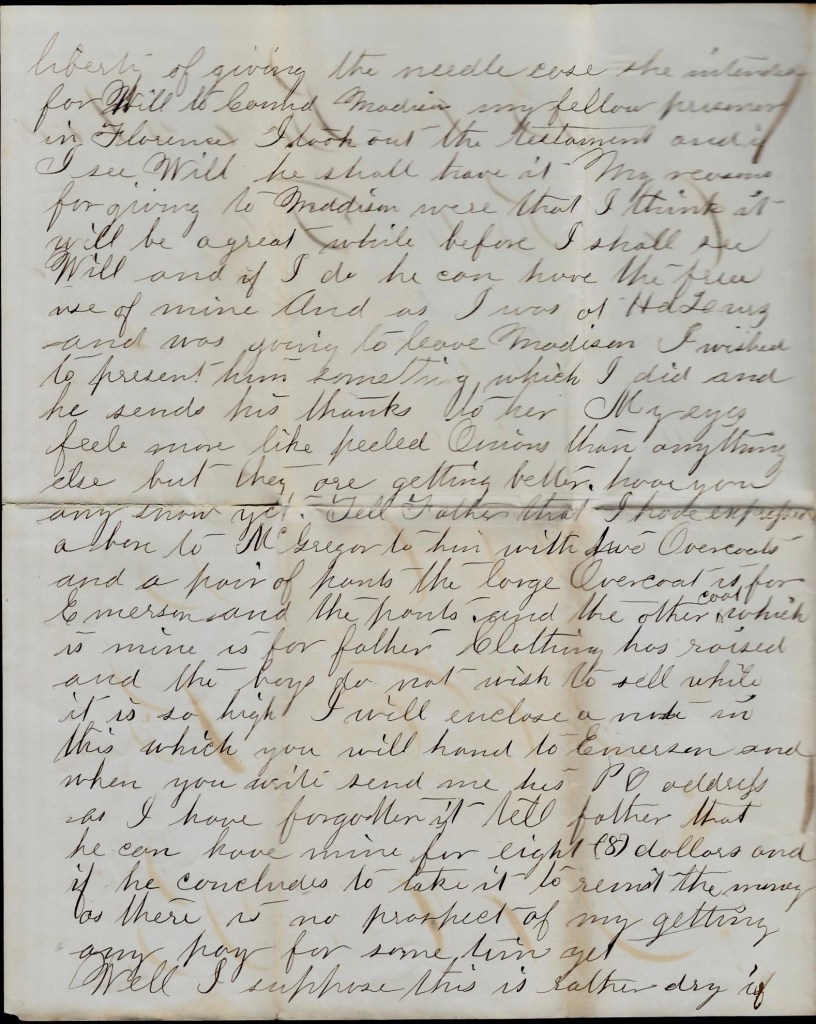 liberty of giving the needle case she intended
for Will to Comrd Madison my fellow prisoner
in Florence I took out the testament and if
I see Will he shall have it My reasons
for giving to Maddison were that I think it
will be a great while before I shall see
Will and if I do he can have the free
use of mine And as I was at Hd
and was going to leave Madison I wished
to present him something, which I did and
he sends his thanks to her My eyes
feele more like peeled Onions than anything
else but they are getting better. have you
any snow yet. Tell Father that I have expressed
a box to McGregor to him with two Overcoats
and a pair of pants the large Overcoat is for
Emerson and the pants and the other coat which
is mine is for father Clothing has raised
and the boys do not wish to sell while
it is so high I will enclose a note in
this which you will hand to Emerson and
when you write send me his PO address
as I have forgotten it tell father that
he can have mine for eight (8) dollars and
if he concludes to take it to remit the money
as there is no prospect of my getting
any pay for some tim yet
Well I suppose this is rather dry if